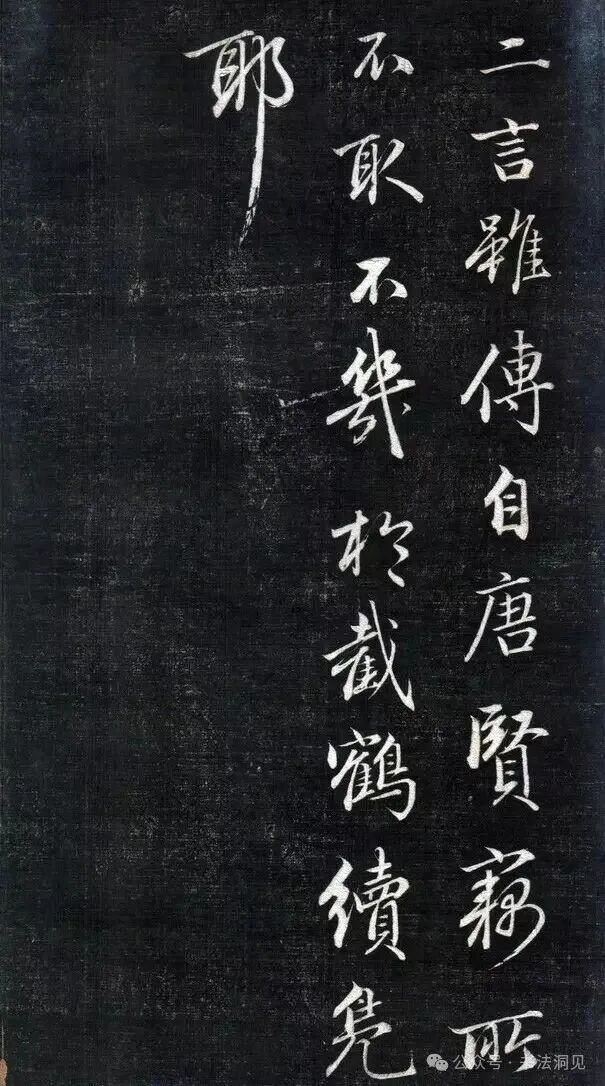 二言雖傳自唐賢竊所
不取不幾於截鶴續鳧
耶
公众号·书法洞见